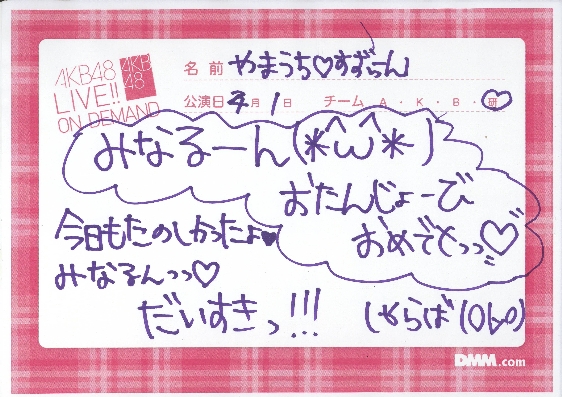 AKB48
LIVE!!
ON DEMAND
AKB
48
名前 やまうち♡すずらん
公演日 4月 1日 チーム A・K・B・研
みなるーん(*^ω^*)
おたんじょーび
おめでとっっ♡
今日もたのしかったよ♥
みなるんっっ♡
だいすきっ!!!
DMM.com